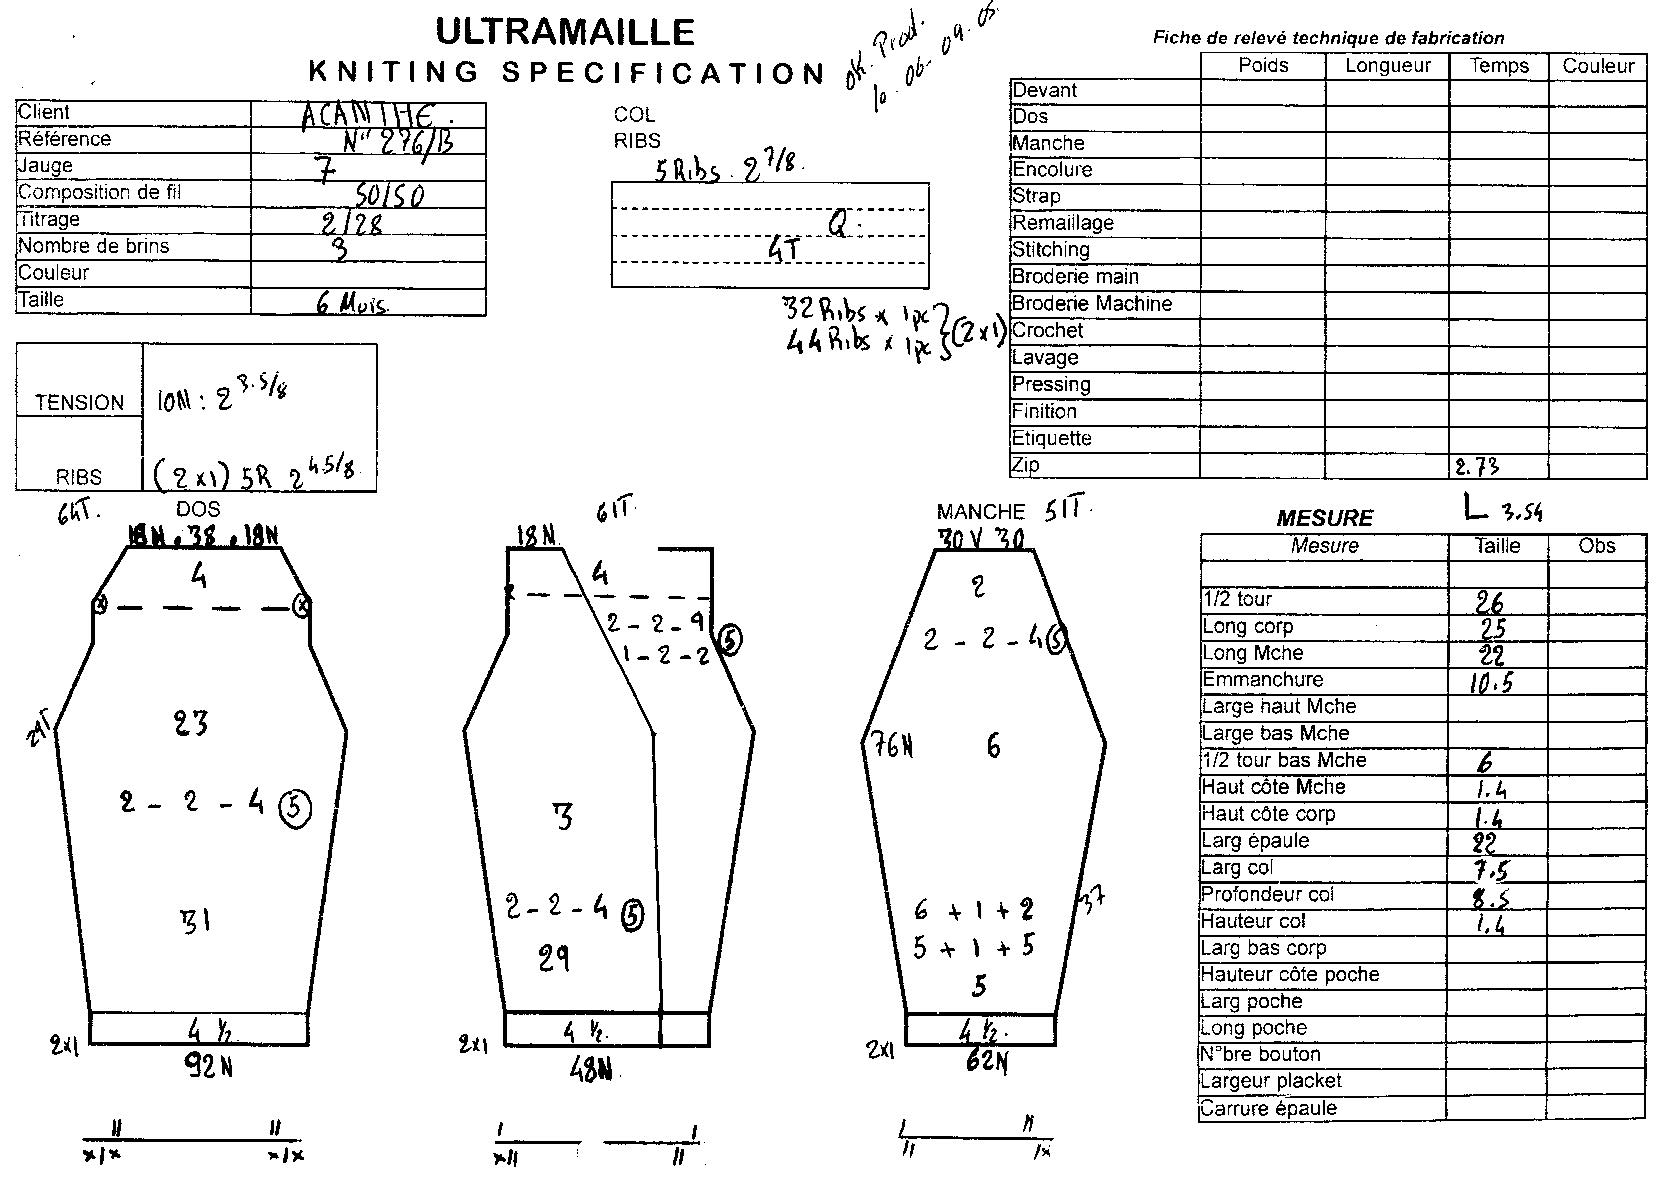 ULTRAMAILLE
KNITING SPECIFICATION
ok. Prod.
06-09.05
Client ACANTHE.
Référence N° 276/B
Jauge 7
Composition de fil 50/50
Titrage 2/28
Nombre de brins 3
Couleur
Taille 6 Mois.
COL
RIBS
5 Ribs. 2 7/8.
Q.
4T
32 Ribs x 1pc } (2x1)
44 Ribs x 1pc
TENSION 10N: 2 3.5/8
RIBS (2x1) 5R 2 4.5/8
Fiche de relevé technique de fabrication
Poids Longueur Temps Couleur
Devant
Dos
Manche
Encolure
Strap
Remaillage
Stitching
Broderie main
Broderie Machine
Crochet
Lavage
Pressing
Finition
Etiquette
Zip 2.73
L 3.54
64T. DOS
18N. 38. 18N
4
23
2 - 2 - 4 (5)
31
4 ½
2x1
92N
61T.
18N
4
2 - 2 - 9
1 - 2 - 2 (5)
3
2 - 2 - 4 (5)
29
4 ½.
2x1
48N
MANCHE 51T.
30 V 30
2
2 - 2 - 4 (5)
76N 6
37
6 + 1 + 2
5 + 1 + 5
5
4 ½.
2x1
62N
MESURE
Mesure Taille Obs
1/2 tour 26
Long corp 25
Long Mche 22
Emmanchure 10.5
Large haut Mche
Large bas Mche
1/2 tour bas Mche 6
Haut côte Mche 1.4
Haut côte corp 1.4
Larg épaule 22
Larg col 7.5
Profondeur col 8.5
Hauteur col 1.4
Larg bas corp
Hauteur côte poche
Larg poche
Long poche
N°bre bouton
Largeur placket
Carrure épaule